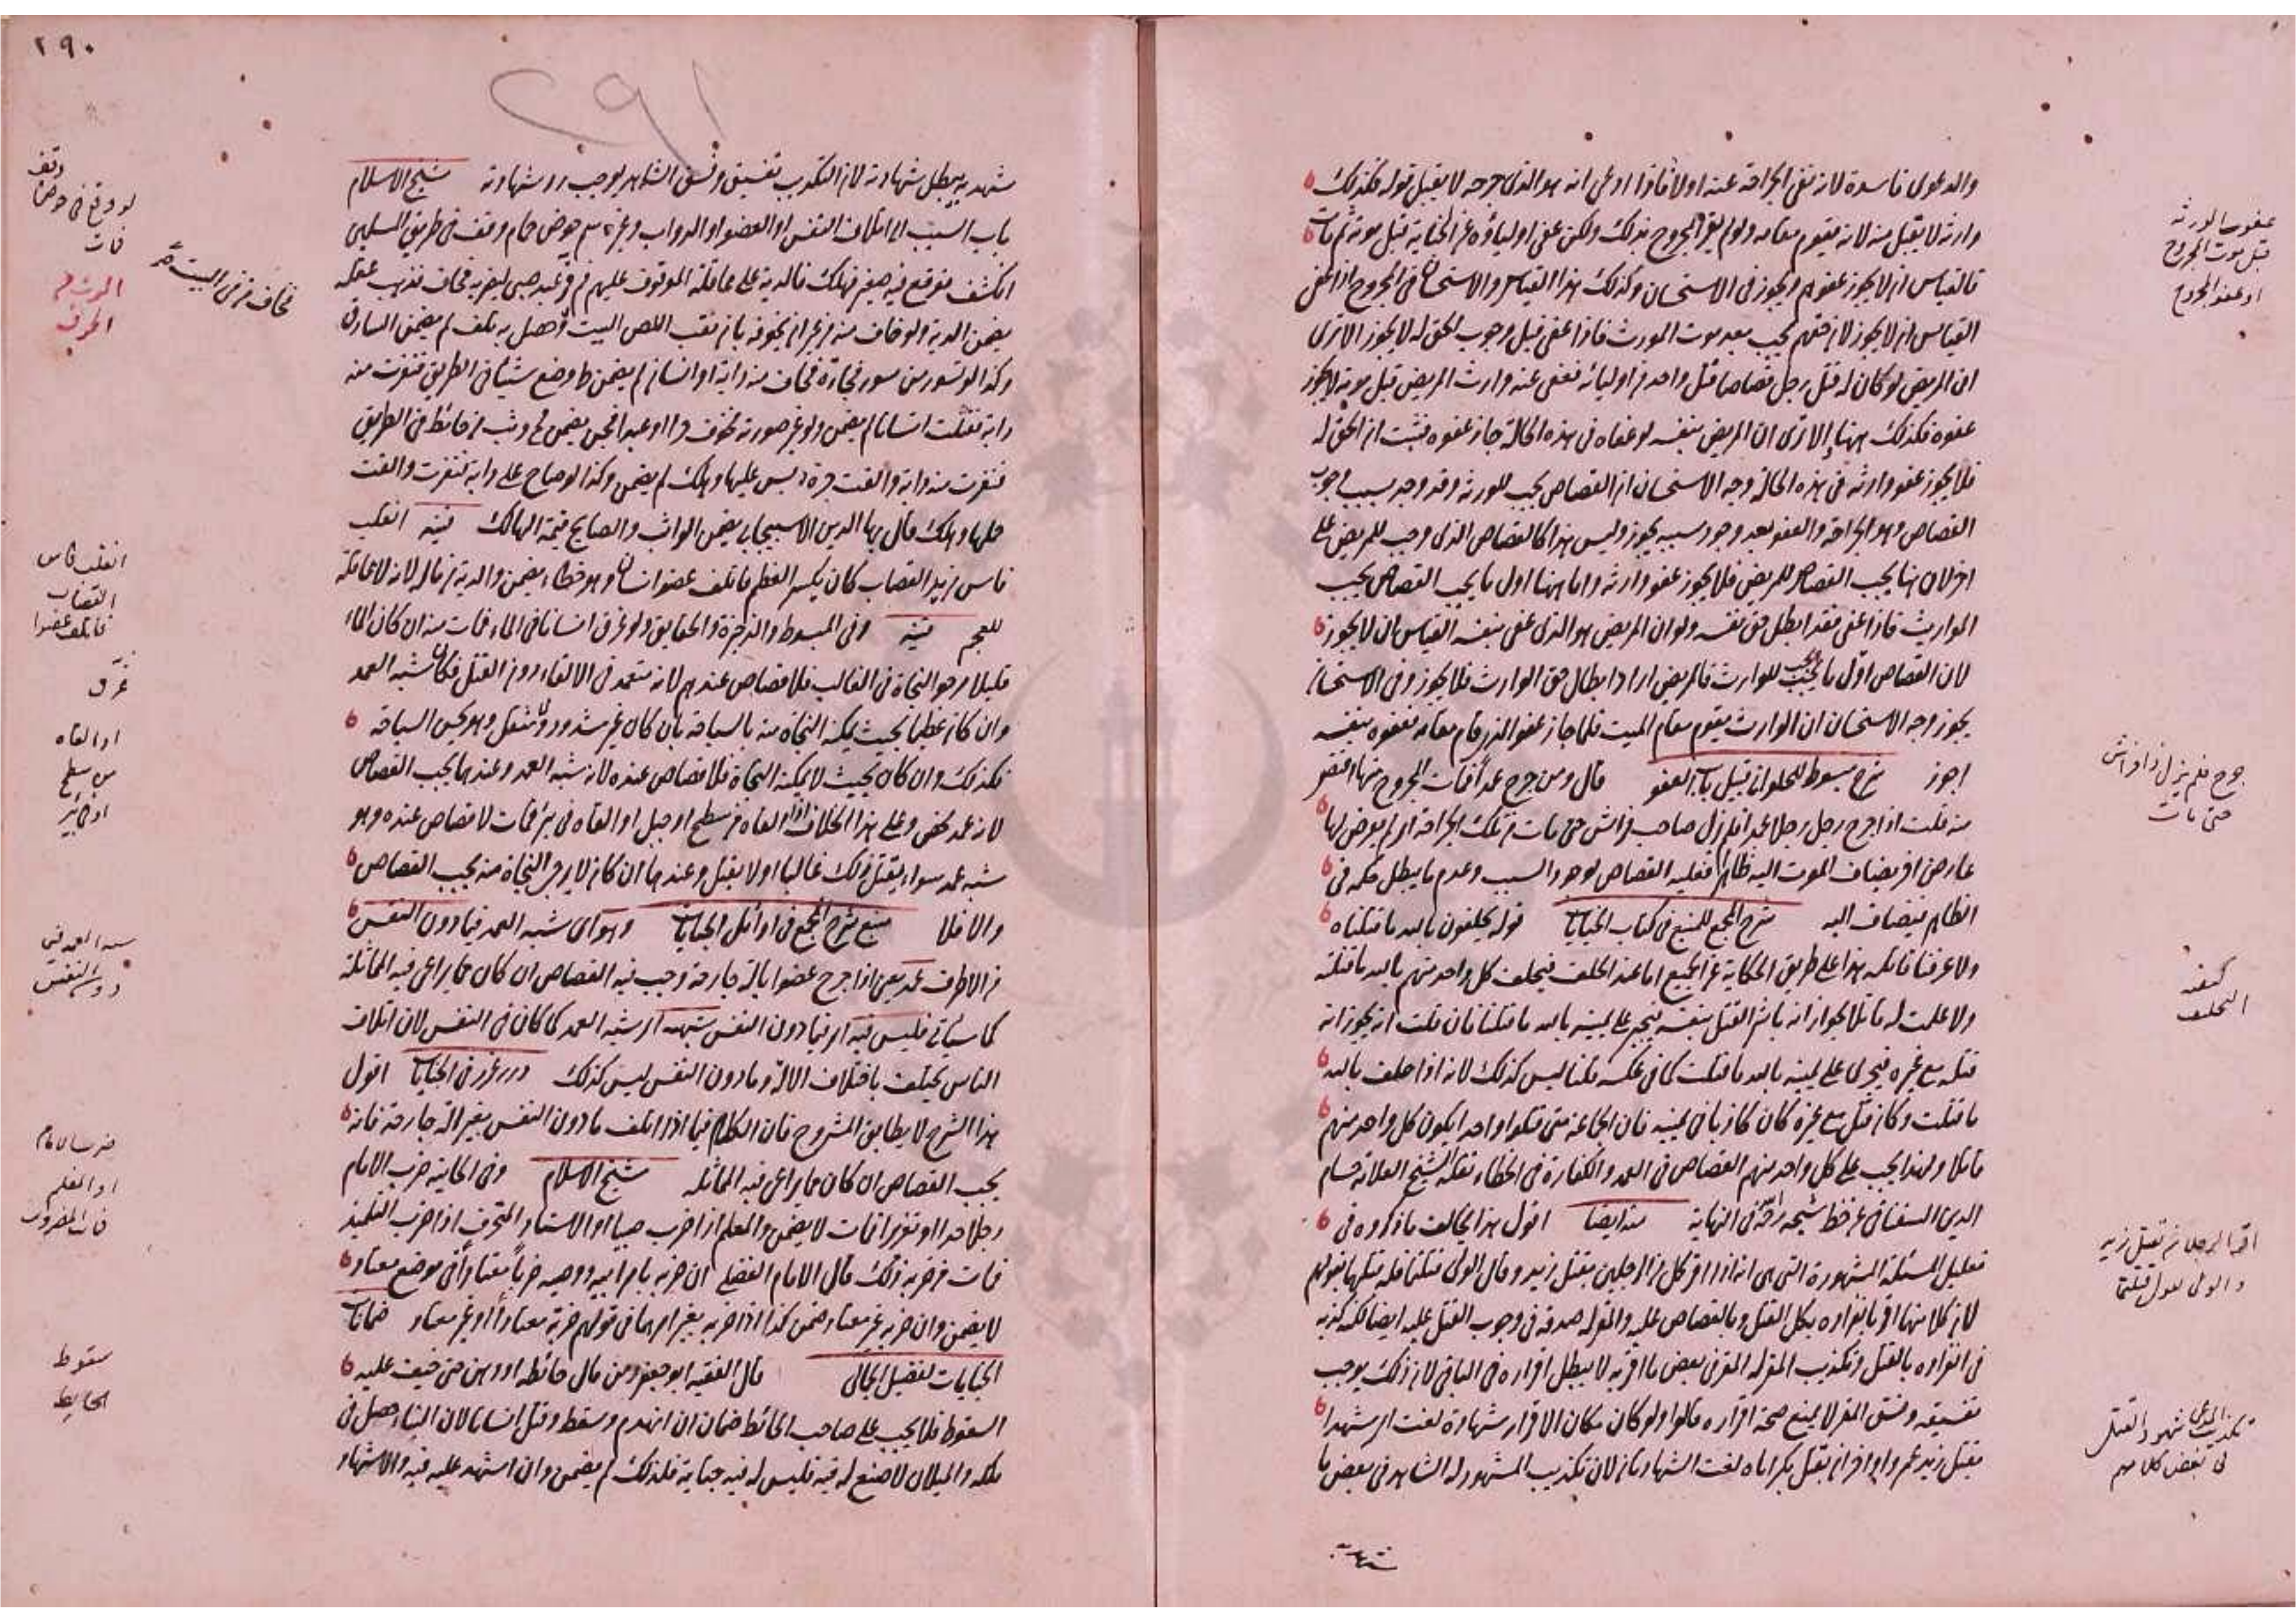 والدعوى فاسدة لانه نفى الجراحة عنه اولا فاذا ادعى انه هو الذى جرحه لا يقبل قوله فكذلك
وارثه لا يقبل منه لانه يقوم مقامه ولو لم يقل المجروح ذلك ولكن عفى اولياؤه عن الجناية قبل موته ثم مات
فالقياس ان لا يجوز عفوهم ويجوز فى الاستحسان وكذلك هذا القياس والاستحسان فى المجروح اذا عفى
القياس ان لا يجوز لان حقهم يجب بعد موت المورث فاذا عفى قبل وجوب الحق له لا يجوز الا ترى
ان المريض لو كان له قتل رجل قصاصا قتل واحد من اوليائه فعفى عنه وارث المريض قبل موته لا يجوز
عفوه فكذلك ههنا الا ترى ان المريض بنفسه لو عفاه فى هذه الحالة جاز عفوه فثبت ان الحق له
فلا يجوز عفو وارثه فى هذه الحالة وجه الاستحسان ان القصاص يجب للورثة وقد وجد سبب وجوب
القصاص وهو الجراحة والعفو بعد وجود سببه يجوز وليس هذا كالقصاص الذى وجب للمريض على
اخر لان هنا يجب القصاص للمريض فلا يجوز عفو وارثه واما ههنا اول ما يجب القصاص يجب
للوارث فاذا عفى فقد ابطل حق نفسه ولو ان المريض هو الذى عفى بنفسه القياس ان لا يجوز
لان القصاص اول ما يجب يجب للوارث فالمريض اراد ابطال حق الوارث فلا يجوز وفى الاستحسان
يجوز وجه الاستحسان ان الوارث يقوم مقام الميت فلما جاز عفو الذى قام مقامه فعفوه بنفسه
اجوز شرح مبسوط للحلوانى قبيل باب العفو قال ومن جرح عمدا فمات المجروح منها اقتص
منه قلت اذا جرح رجل رجلا عمدا فلم يزل صاحب فراش حتى مات من تلك الجراحة او لم يعرض لها
عارض اخر يضاف الموت اليه ظاهرا فعليه القصاص لوجود السبب وعدم ما يبطل حكمه فى
الظاهر فيضاف اليه شرح المجمع للمنبع فى كتاب الجنايات قوله يحلفون بالله ما قتلناه
ولا عرفنا قاتله هذا على طريق الحكاية عن الجميع اما عند الحلف فيحلف كل واحد منهم بالله ما قتلته
ولا علمت له قاتلا لجواز انه باشر القتل بنفسه فيجترى على يمينه بالله ما قتلنا فان قلت انه يجوز انه
قتله مع غيره فيجترى على يمينه بالله ما قتلت كما فى عكسه قلنا ليس كذلك لانه اذا حلف بالله
ما قتلت وكان قتل مع غيره كان كاذبا فى يمينه فان الجماعة متى قتلوا واحدا يكون كل واحد منهم
قاتلا ولهذا يجب على كل واحد منهم القصاص فى العمد والكفارة فى الخطاء نقله الشيخ العلامة حسام
الدين السغناقى عن خط شيخه فى النهاية منه ايضا اقول هذا يخالف ما ذكروه فى
تعليل المسئلة المشهورة التى هى انه اذا اقر كل من الرجلين بقتل زيد وقال الولى قتلتماه له قتلهما بقولهم
لان كلا منهما اقر بانفراده بكل القتل وبالقصاص عليه والمقر له صدقه فى وجوب القتل عليه ايضا لكنه كذبه
فى انفراده بالقتل وتكذيب المقر له المقر فى بعض ما اقر به لا يبطل اقراره فى الباقى لان ذلك يوجب
تفسيقه وفسق المقر لا يمنع صحة اقراره قالوا ولو كان مكان الاقرار شهادة لغت اى شهدا
بقتل زيد عمروا واخران بقتل بكر اياه لغت الشهادتان لان تكذيب المشهود له الشاهد فى بعض ما
شهد به
عفو الورثة
قبل موت المجروح
او عفو المجروح
جرح فلم يزل ذا فراش
حتى مات
كيفية
التحلف
اقرا لرجلان بقتل زيد
والولى يقول قتلتما
تكذيب المدعى شهود القتل
فى بعض كلامهم
٢٩٠
٢٩١
شهد به يبطل شهادته لان التكذيب تفسيق وفسق الشاهد يوجب رد شهادته شيخ الاسلام
باب السبب الى اتلاف النفس او العضو او الدواب وغيره حوض حمام وقف فى طريق المسلمين
انكشف فوقع فيه صغير فهلك فالدية على عاقلة الموقوف عليهم صبى ليضربه فخاف فذهب عقله
يضمن الدية ولو خاف منه من غير ان يخوفه بان نقب اللص البيت وحصل به تلف لم يضمن السارق
وكذا لو تسور من سور فجاءة فخاف منه دابة او انسان لم يضمن ط وضع شيئا فى الطريق فنفرت منه
دابة فقتلت انسانا لم يضمن ولو غير صورته يخوف حرا او عبدا فجن يضمن وثب من حائط فى الطريق
فنفرت منه دابة والقت ليس عليها وهلك لم يضمن وكذا لو صاح على دابة فنفرت والقت
حملها وهلك قال بهاء الدين الاسبيجابى يضمن الواثب والصايح قيمة الهالك قنيه انقلب
فاس من يد القصاب كان يكسر العظم فاتلف عضو انسان وهو خطاء يضمن والدية من ماله لانه لا عاقلة
للعجم قنيه وفى المبسوط والذخيرة والحقايق ولو غرق انسانا فى الماء فمات منه ان كان الماء
قليلا يرجو النجاة فى الغالب فلا قصاص عندهم لانه متعمد فى الالقاء دون القتل فكان شبه العمد
وان كان عظيما بحيث يمكنه النجاة منه بالسباحة بان كان غير مشدود ولا مثقل وهو يحسن السباحة
فكذلك وان كان بحيث لا يمكنه النجاة فلا قصاص عنده لانه شبه العمد وعندهما يجب القصاص
لانه عمد محض وعلى هذا الخلاف اذا القاه من سطح او جبل او القاه فى بئر فمات لا قصاص عنده وهو
شبه عمد سواء يقتل ذلك غالبا او لا يقتل وعندهما ان كان لا يرجى النجاة منه يجب القصاص
والا فلا منبع شرح المجمع فى اوائل الجنايات وهو اى شبه العمد فيما دون النفس
من الاطراف عمد يعنى اذا جرح عضوا بالة جارحة وجب فيه القصاص ان كان مما يراعى فيه المماثلة
كما سياتى فليس فيه اى فيما دون النفس شبهه اى شبه العمد كما كان فى النفس لان اتلاف
الناس يختلف باختلاف الالة وما دون النفس ليس كذلك درر غرر فى الجنايات اقول
هذا الشرح لا يطابق المشروح فان الكلام فيما اذا اتلف ما دون النفس بغير الة جارحة فانه
يجب القصاص ان كان مما يراعى فيه المماثلة شيخ الاسلام وفى الخانية ضرب الامام
رجلا حدا او تعزيرا فمات لا يضمن والمعلم اذا ضرب صبيا او الاستاد المحترف اذا ضرب التلميذ
فمات من ضربه ذلك قال الامام الفضلى ان ضربه بامر ابيه ووصيه ضربا معتادا فى موضع معتاد
لا يضمن وان ضربه غير معتاد ضمن كذا اذا ضربه بغير امرهما فى قولهم ضربه معتادا او غير معتاد ضمانات
الجنايات لفضيل الجمالى قال الفقيه ابو جعفر ومن مال حائطه او وهن حتى خيف عليه
السقوط فلا يجب على صاحب الحائط ضمان ان انهدم وسقط وقتل انسانا لان البناء حصل فى
ملكه والميلان لا صنع له فيه فليس له فيه جناية فلذلك لم يضمن وان استهد عليه فيه والاشهاد
وقف
لو وقع فى حوض
فمات
فخاف من فى البيت
انقلب فاس
القصاب
فاتلف عضوا
غرق
او القاه
من سطح
او فى بئر
شبه العمد فى
دون النفس
ضرب الامام
او المعلم
فمات المضروب
سقوط
الحايط